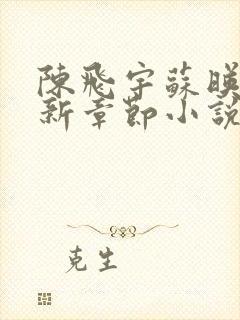 陳飛宇蘇暎
新章節小說
克生